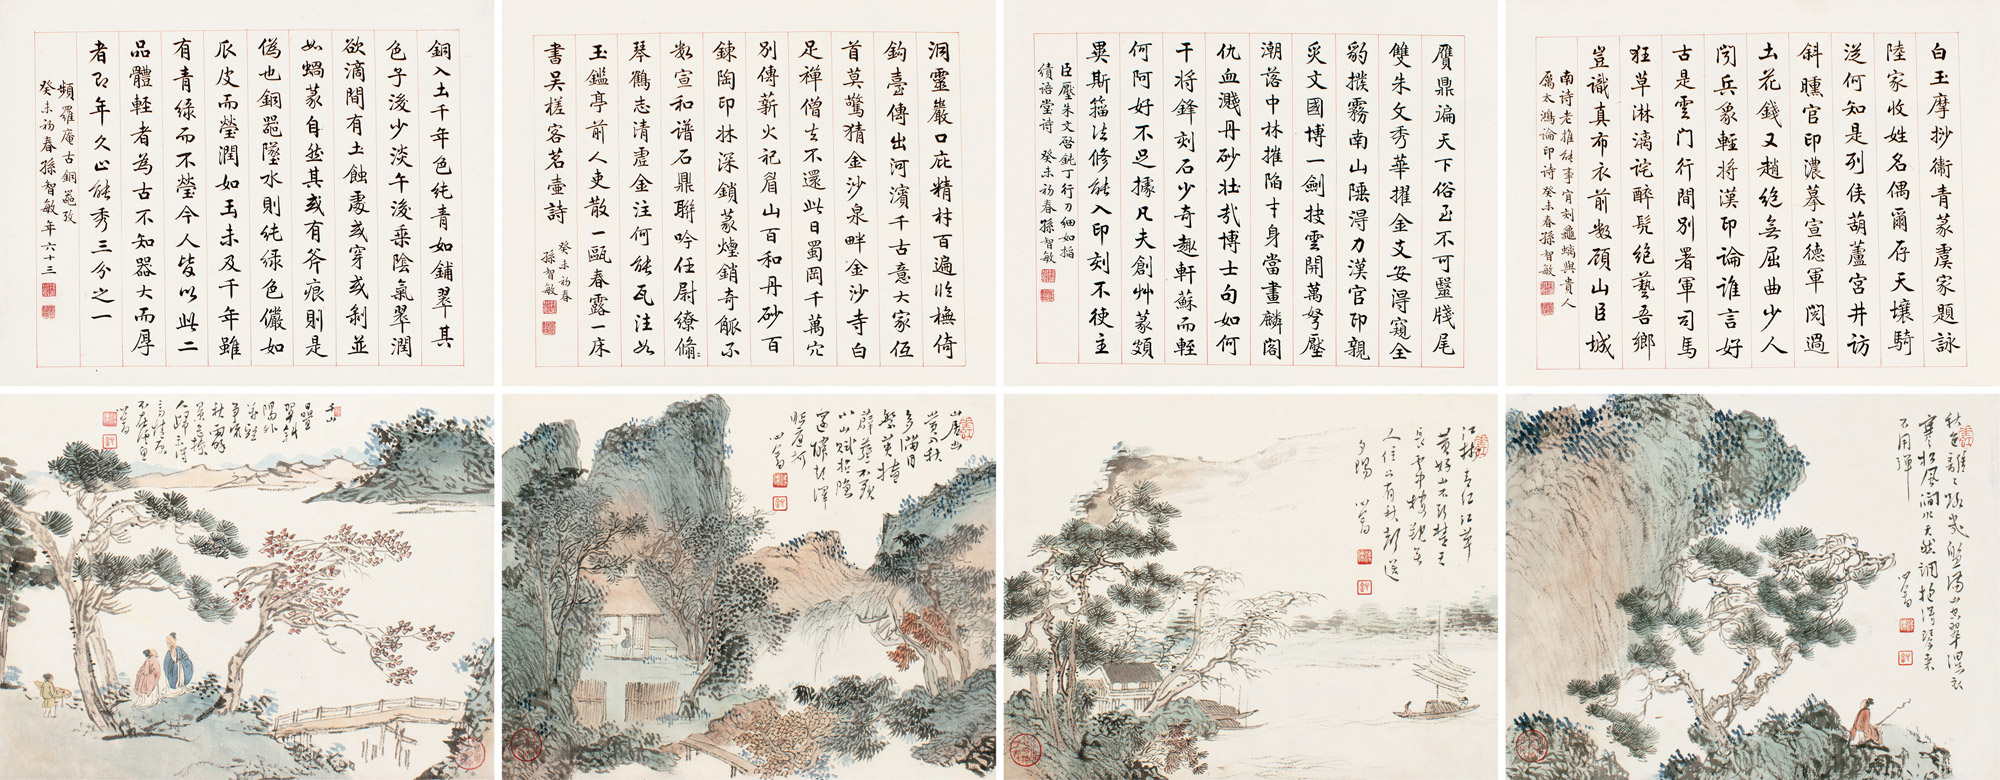 銅入土千年色純青如鋪翠其
色子後少淡午後乗陰氣翠潤
欲滴間有土蝕處或穿或剥並
如蝸篆自然其或有斧痕則是
偽也銅器墜水則純綠色儼如
瓜皮而瑩潤如玉未及千年雖
有青綠而不瑩今人皆以此二
品體輕者為古不知器大而厚
者即年久止能秀三分之一
頻羅庵古銅器攷
癸未初春孫智敏年六十三
洞靈巖口庀精材百遍臨橅倚
鉤臺傳出河濱千古意大家伍
首莫驚猜金沙泉畔金沙寺白
足禪僧去不還此日蜀岡千萬穴
別傳薪火祀眉山百和丹砂百
鍊陶印牀深鎖篆煙銷奇觚不
數宣和谱石鼎聯吟任尉繚脩
琴鶴志清虛金注何能瓦注如
玉鑑亭前人吏散一甌春露一床
書吳槎客茗壺詩
癸未初春
孫智敏
贋鼎遍天下俗工不可毉牋尾
雙朱文秀華擢金艾安得窺全
豹撥霧南山隱得力漢官印親
炙文國博一劍抉雲開萬弩壓
潮落中林摧陷才身當畫麟閣
仇血濺丹砂壮哉博士句如何
干將鋒刻石少奇趣軒蘇而輊
何阿好不足據凡夫創艸篆頗
異斯籀法修能入印刻不使主
臣壓朱文啓鈍丁行刀細如掐
績語堂詩 癸未初春孫智敏
白玉摩抄衛青篆虞家題詠
陸家收姓名偶爾存天壤騎
從何知是列侯葫蘆宮井訪
斜曛官印濃摹宣德軍閱過
土花錢又趙絕無屈曲少人
閔兵象輕將漢印論誰言好
古是雲門行間別署軍司馬
狂草淋漓詫醉髡絕藝吾鄉
豈識真布衣前數顧山臣城
南诗老推能事肯刻龜螭與貴人
厲太鴻論印詩癸未春孫智敏
千山
翠斜
陽外
萬壑
爭流
秋雨
心畬
心畬
江樹青红江草
黄好山不斷楚天
長雲中樓觀無
人住只有秋聲送
夕陽 心畬
秋色離離路幾盤滿山空翠濕衣
寒松風澗水天然調抱得琴來
不用彈 心畬